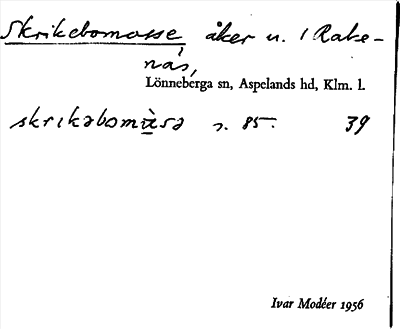 Skrikebomosse åker n. / Rake-
näs,
Lönneberga sn, Aspelands hd, Klm. l.
skrikəbomùsə s. 85. 39
Ivar Modéer 1956